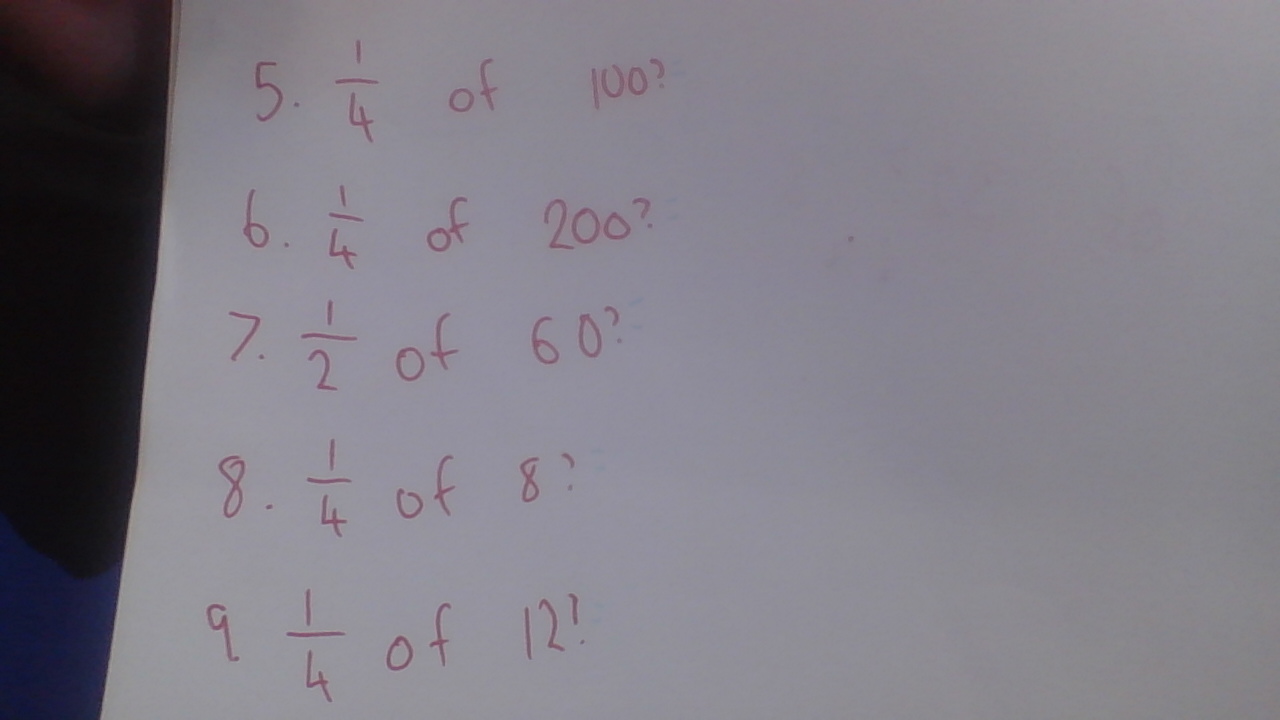 5. 1/4 of 100?
6. 1/4 of 200?
7. 1/2 of 60?
8. 1/4 of 8?
9 1/4 of 12?